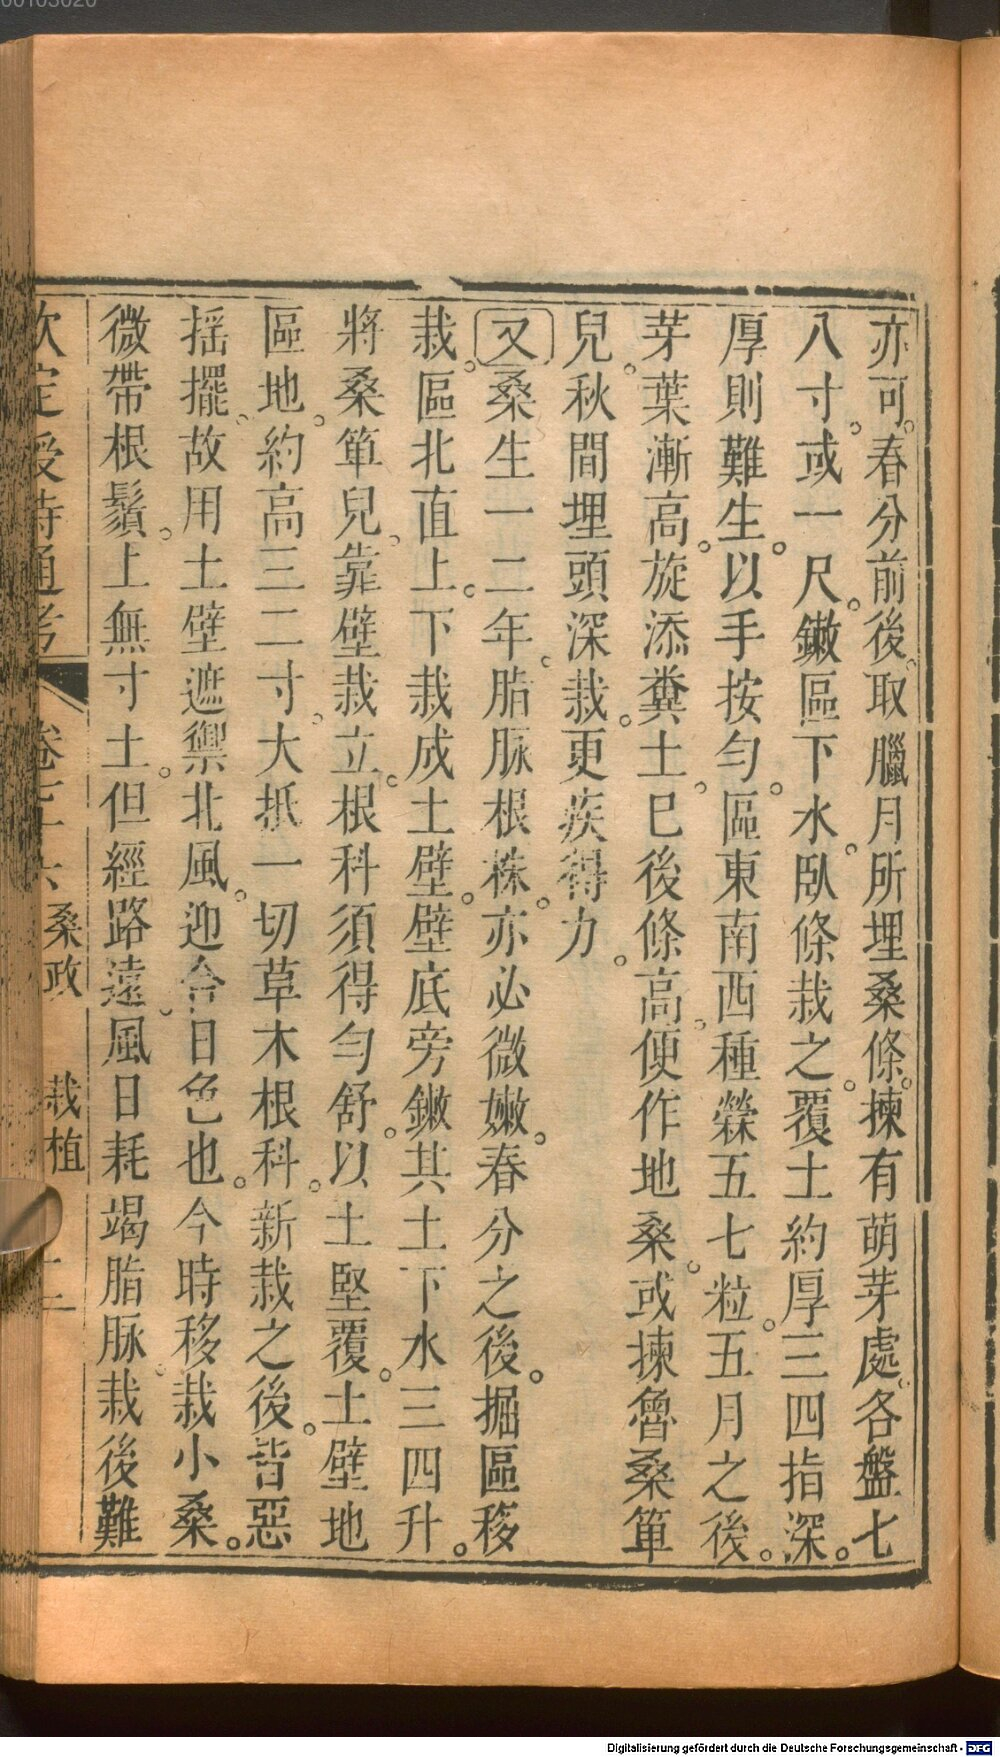 亦可。春分前後。取臘月所埋桑條。揀有萌芽處。各盤七
八寸。或一尺。鐝區下水。臥條栽之。覆土約厚三四指。深
厚則難生。以手按勻。區東南西種䅌五七粒。五月之後。
芽葉漸高。旋添糞土。巳後條高。便作地桑。或揀魯桑箄
兒。秋間埋頭深栽。更疾得力。
又桑生一二年。脂脈根株。亦必微嫩。春分之後。掘區移
栽。區北直上。下栽成土壁。壁底旁鐝其土。下水三四升。
將桑箄兒。靠壁栽立。根科須得勻舒。以土堅覆。土壁地
區地。約高三二寸。大抵一切草木根科。新栽之後。皆惡
搖擺。故用土壁遮禦北風。迎合日色也。今時移栽小桑。
微帶根鬚。上無寸土。但經路遠。風日耗竭脂脈。栽後難
欽定授時通考 卷七十六 桑政 栽植 十二
00103020
Digitalisierung gefördert durch die Deutsche Forschungsgemeinschaft - DFG